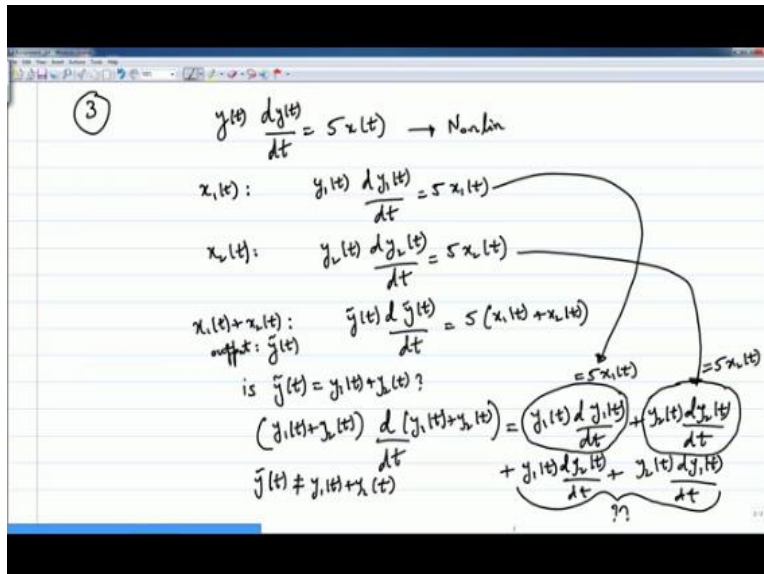 3
y(t) dy(t)/dt = 5x(t) → Nonlin
x₁(t): y₁(t) dy₁(t)/dt = 5x₁(t)
x₂(t): y₂(t) dy₂(t)/dt = 5x₂(t)
x₁(t)+x₂(t): ỹ(t) d ỹ(t)/dt = 5(x₁(t)+x₂(t))
output: ỹ(t)
is ỹ(t) = y₁(t)+y₂(t)?
=5x₁(t) =5x₂(t)
(y₁(t)+y₂(t)) d/dt (y₁(t)+y₂(t)) = y₁(t) d y₁(t)/dt + y₂(t) dy₂(t)/dt
+ y₁(t) dy₂(t)/dt + y₂(t) dy₁(t)/dt
ỹ(t) ≠ y₁(t)+y₂(t)
??